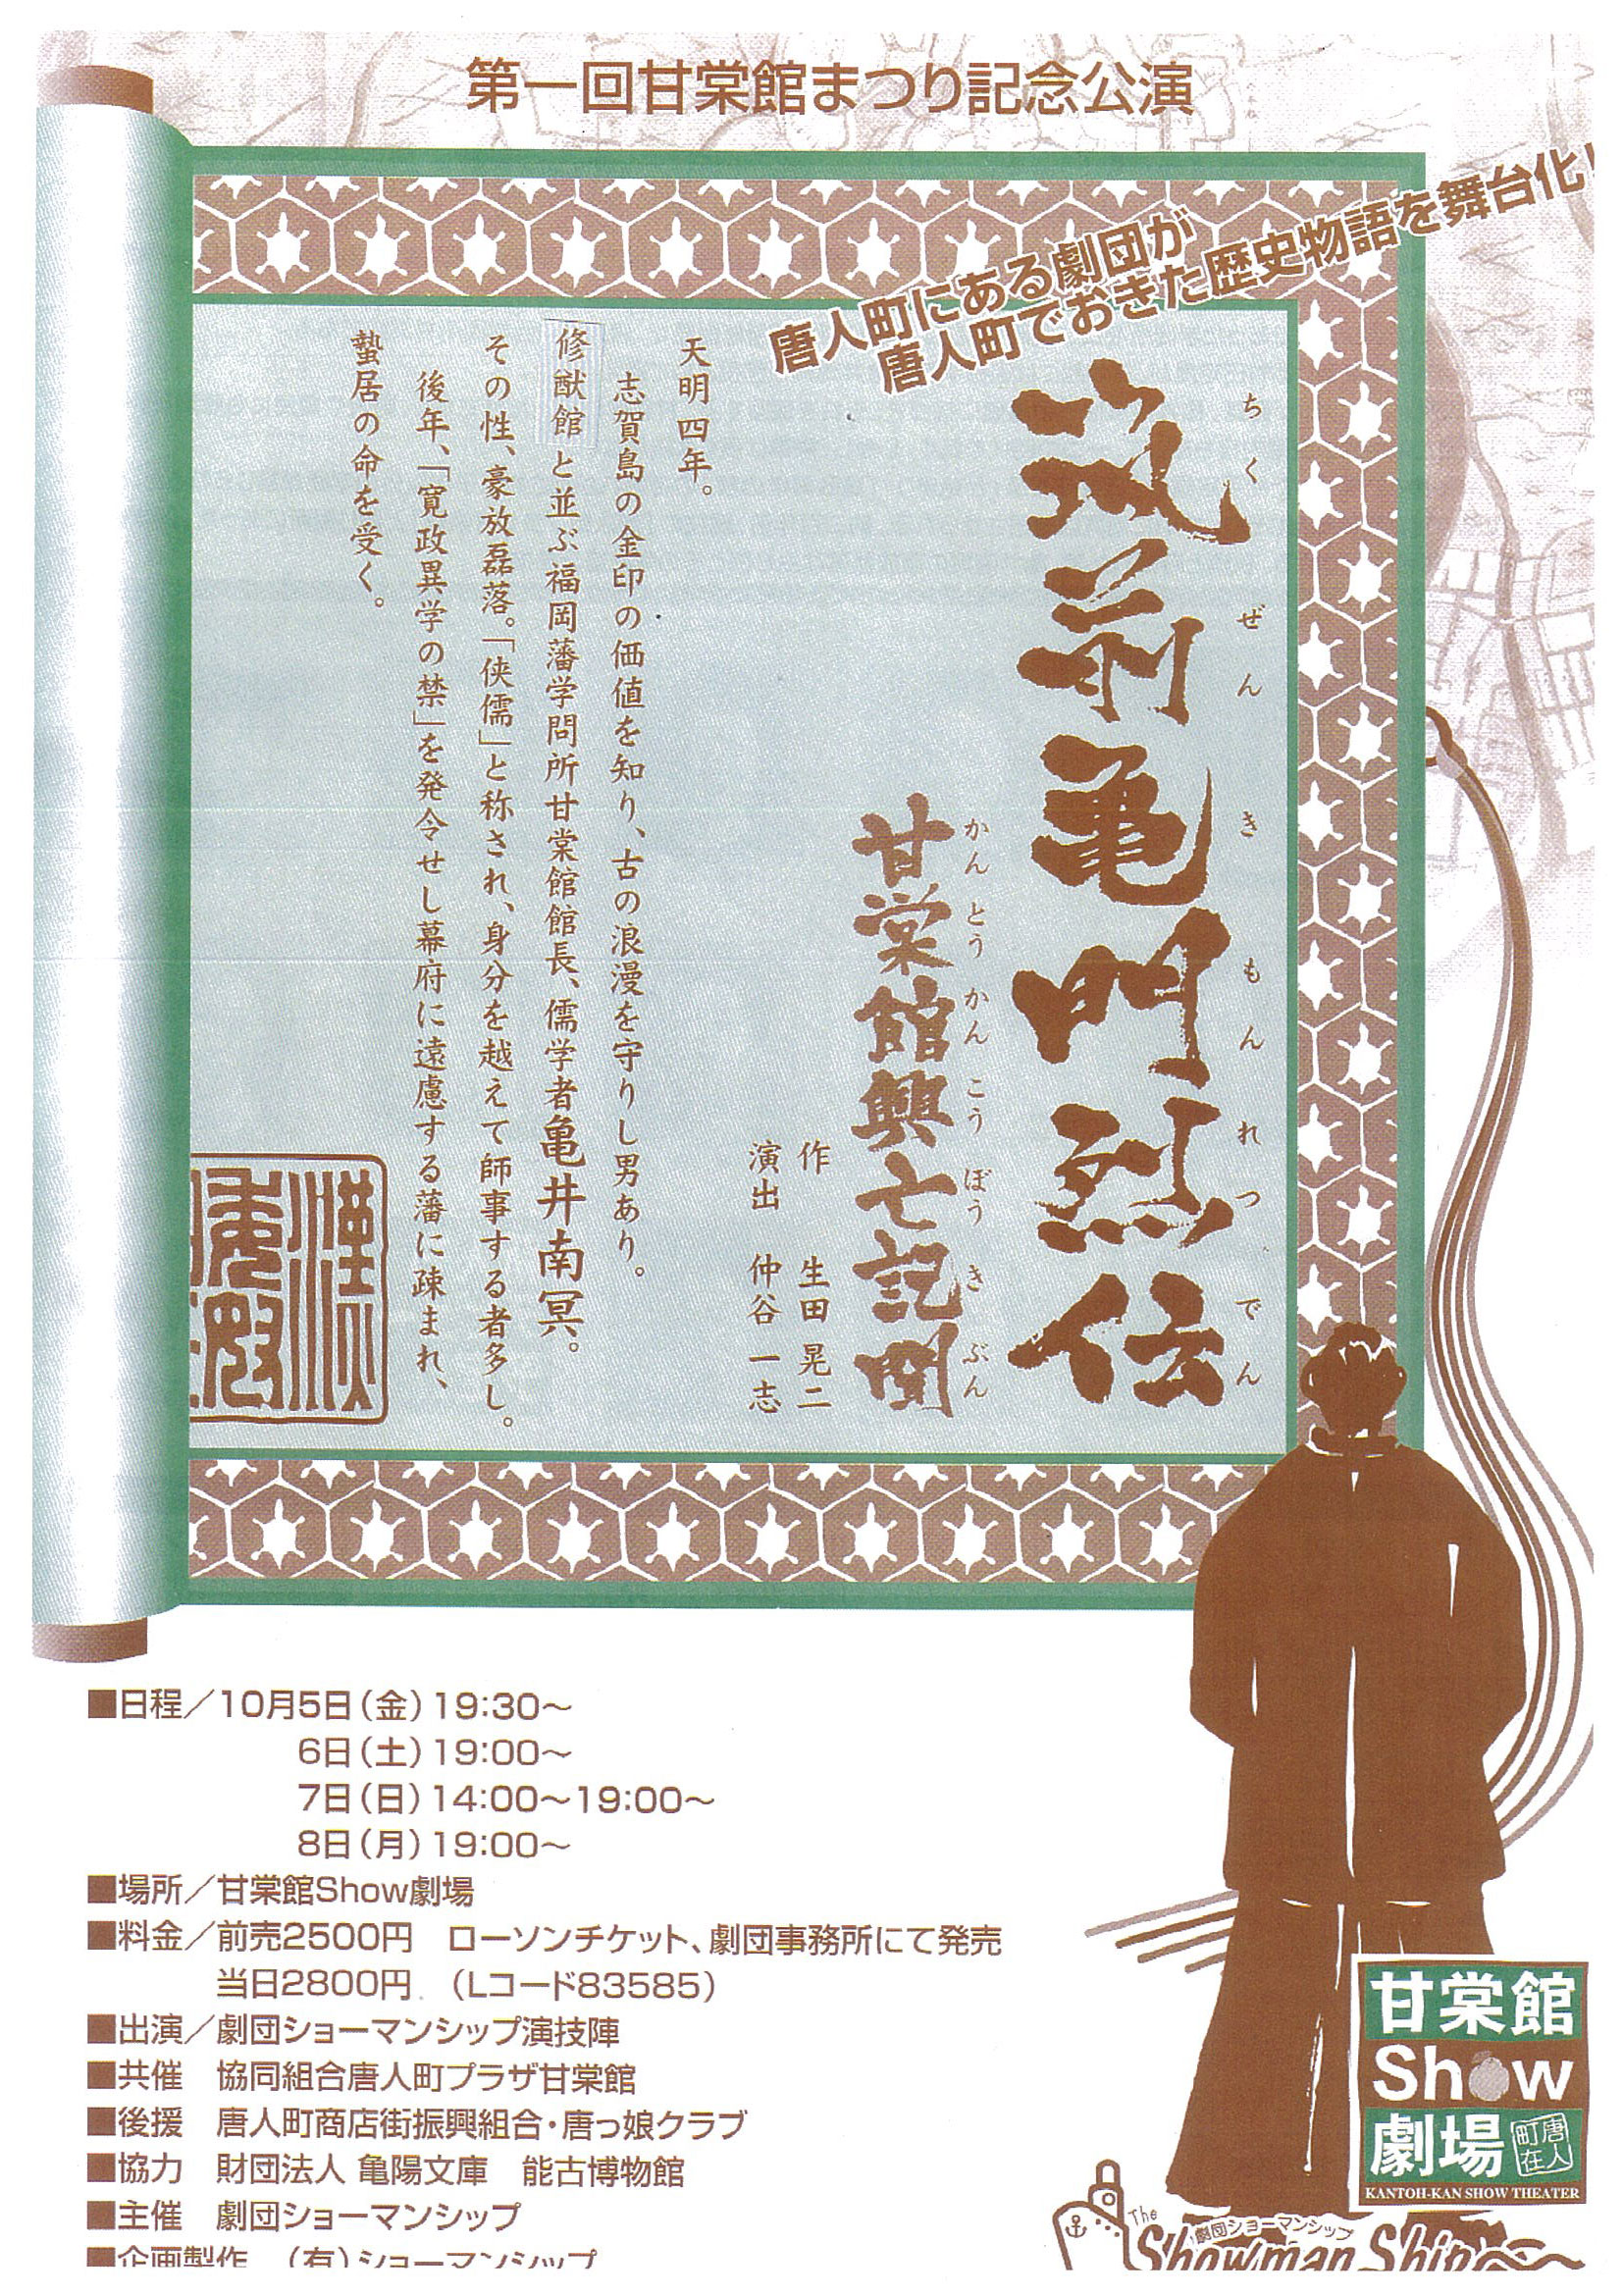 第一回甘棠館まつり記念公演
唐人町にある劇団が
唐人町でおきた歴史物語を舞台化！
筑前亀門烈伝
ちくぜんきもんれつでん
甘棠館興亡記聞
かんとうかんこうぼうきぶん
作 生田 晃二
演出 仲谷 一志
天明四年。
志賀島の金印の価値を知り、古の浪漫を守りし男あり。
修猷館と並ぶ福岡藩学問所甘棠館館長、儒学者亀井南冥。
その性、豪放磊落。「侠儒」と称され、身分を越えて師事する者多し。
後年、「寛政異学の禁」を発令せし幕府に遠慮する藩に疎まれ、
蟄居の命を受く。
■日程／10月5日（金）19:30〜
6日（土）19:00〜
7日（日）14:00〜19:00〜
8日（月）19:00〜
■場所／甘棠館Show劇場
■料金／前売2500円 ローソンチケット、劇団事務所にて発売
当日2800円 （Lコード83585）
■出演／劇団ショーマンシップ演技陣
■共催 協同組合唐人町プラザ甘棠館
■後援 唐人町商店街振興組合・唐っ娘クラブ
■協力 財団法人 亀陽文庫 能古博物館
■主催 劇団ショーマンシップ
■企画製作 （有）ショーマンシップ
甘棠館
Show
劇場
唐人町在
KANTOH-KAN SHOW THEATER
劇団ショーマンシップ
The Showman Ship